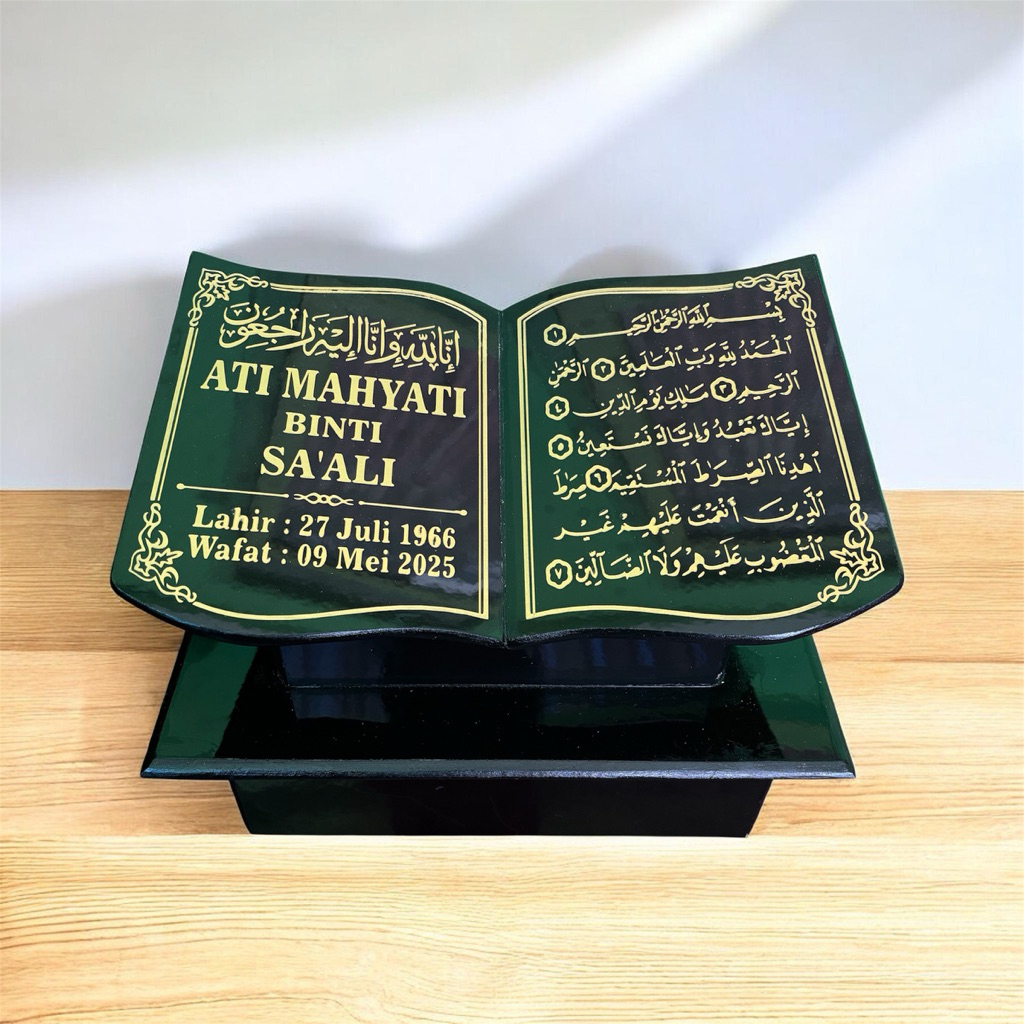 إِنَّا لِلَّٰهِ وَإِنَّا إِلَيْهِ رَاجِعُونَ
ATI MAHYATI
BINTI
SA'ALI
Lahir : 27 Juli 1966
Wafat : 09 Mei 2025
بِسْمِ اللَّهِ الرَّحْمَٰنِ الرَّحِيمِ ١
الْحَمْدُ لِلَّهِ رَبِّ الْعَالَمِينَ ٢ الرَّحْمَٰنِ
الرَّحِيمِ ٣ مَالِكِ يَوْمِ الدِّينِ ٤
إِيَّاكَ نَعْبُدُ وَإِيَّاكَ نَسْتَعِينُ ٥
اهْدِنَا الصِّرَاطَ الْمُسْتَقِيمَ ٦ صِرَاطَ
الَّذِينَ أَنْعَمْتَ عَلَيْهِمْ غَيْرِ
الْمَغْضُوبِ عَلَيْهِمْ وَلَا الضَّالِّينَ ٧